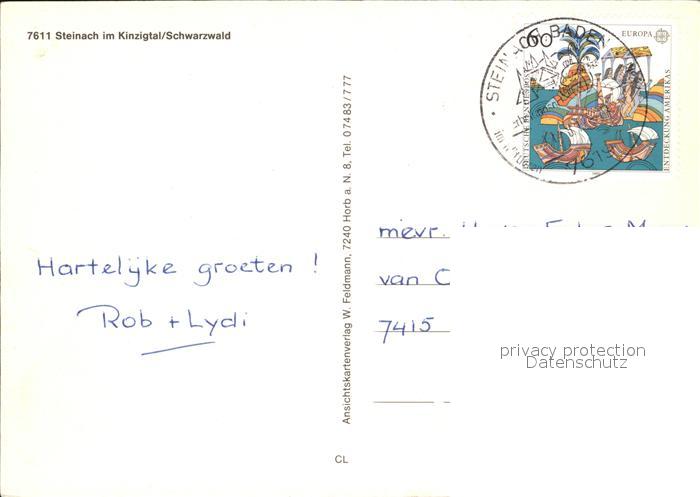 7611 Steinach im Kinzigtal/Schwarzwald
60
EUROPA
DEUTSCHE BUNDESPOST
ENTDECKUNG AMERIKAS
STEINACH, BADEN
7611
Hartelijke groeten !
Rob + Lydi
Ansichtskartenverlag W. Feldmann, 7240 Horb a. N. 8, Tel. 0 74 83 / 7 77
mevr.
van C
7415
privacy protection
Datenschutz
CL